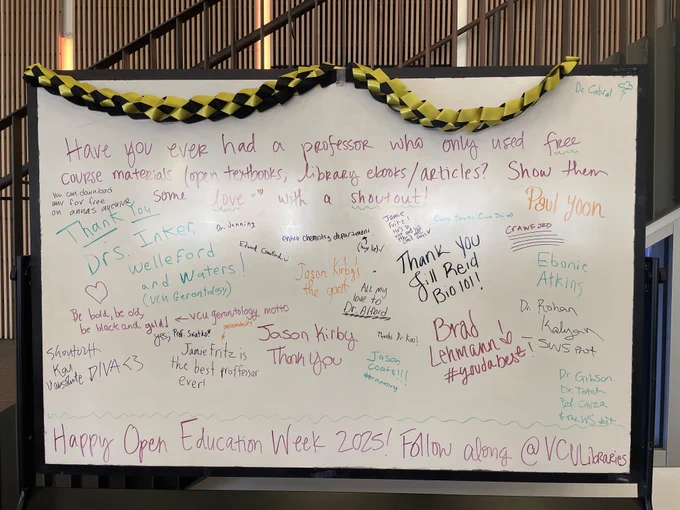 Dr. Cabral
Have you ever had a professor who only used free
course materials (open textbooks, library ebooks/articles? Show them
some love with a shoutout!
You can download
any for free
on annas archive
Thank You
Drs. Inker,
Welleford
and Waters!
(VCU Gerontology)
Dr. Janning
entire chemistry department
Jamie
Fritz!
Paul Yoon
CRAWFORD
Thank You
Jill Reid
Bio 101!
Ebonie
Atkins
Jason Kirby's
the goat
All my
love to
Dr. Alford
Be bold, be old,
be black and gold!
← VCU gerontology motto
yes, Prof.
Jamie Fritz is
the best proffesor
ever!
Jason Kirby
Thank you
Thanks Dr. Kool
Brad
Lehmann!
#youdabest!
Dr. Rohan
Kalyan
Shoutout
DIVA <3
Jason
Coats!!!
Dr Gibson
Happy Open Education Week 2025! Follow along @VCULibraries